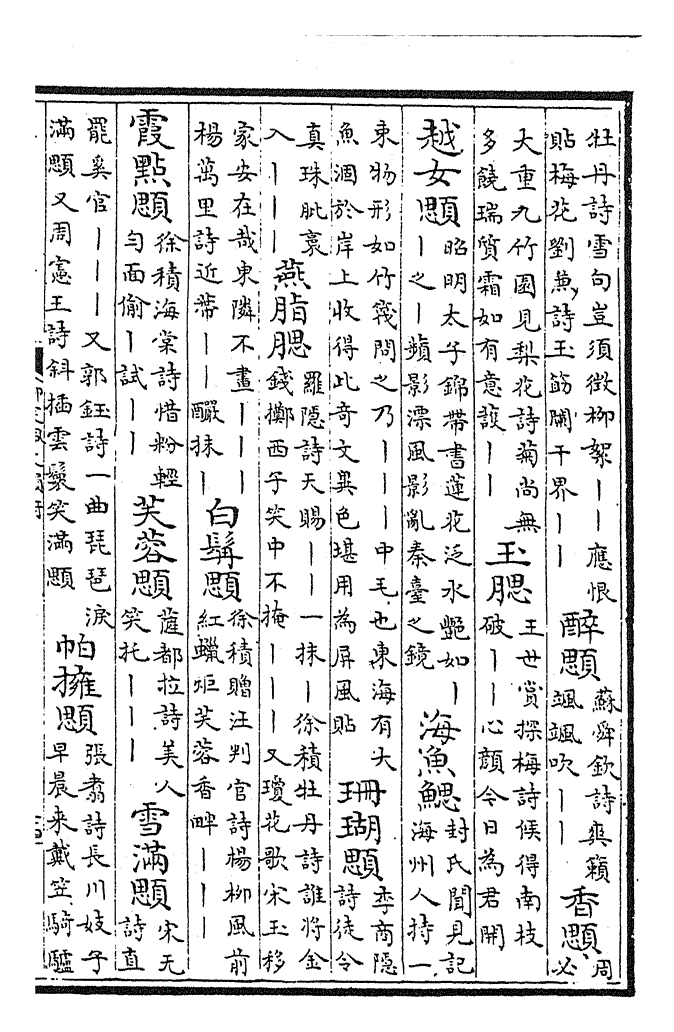 牡丹詩雪句豈須徵柳絮｜｜應恨貼梅花劉兼詩玉筯闌干界｜｜醉顋蘇舜欽詩爽籟颯颯吹｜｜香顋周必
大重九竹園見梨花詩菊尚無多饒瑞質霜如有意護｜｜玉腮王世賞探梅詩候得南枝破｜｜心顏今日為君開
越女顋昭明太子錦帶書蓮花泛水艷如｜｜之｜蘋影漂風影亂秦臺之鏡海魚鰓封氏聞見記海州人持一
束物形如竹篾問之乃｜｜｜中毛也東海有大魚涸於岸上收得此奇文異色堪用為屏風貼珊瑚顋李商隱詩徒令
真珠玭裹入｜｜｜燕脂腮羅隱詩天賜｜｜｜一抹｜徐積牡丹詩誰將金錢擲西子笑中不掩｜｜｜又瓊花歌宋玉移
家安在哉東隣不畫｜｜｜楊萬里詩近蔕｜｜釅抹｜白髯顋徐積贈汪判官詩楊柳風前紅蠟炬芙蓉香畔｜｜｜
霞點顋徐積海棠詩惜粉輕勻面偷｜試｜｜芙蓉顋薩都拉詩美人笑托｜｜｜雪滿顋宋无詩直
罷奚官｜｜｜又郭鈺詩一曲琵琶淚滿顋又周憲王詩斜插雲鬟笑滿顋帕擁顋張翥詩長川妓子早晨来戴笠騎驢